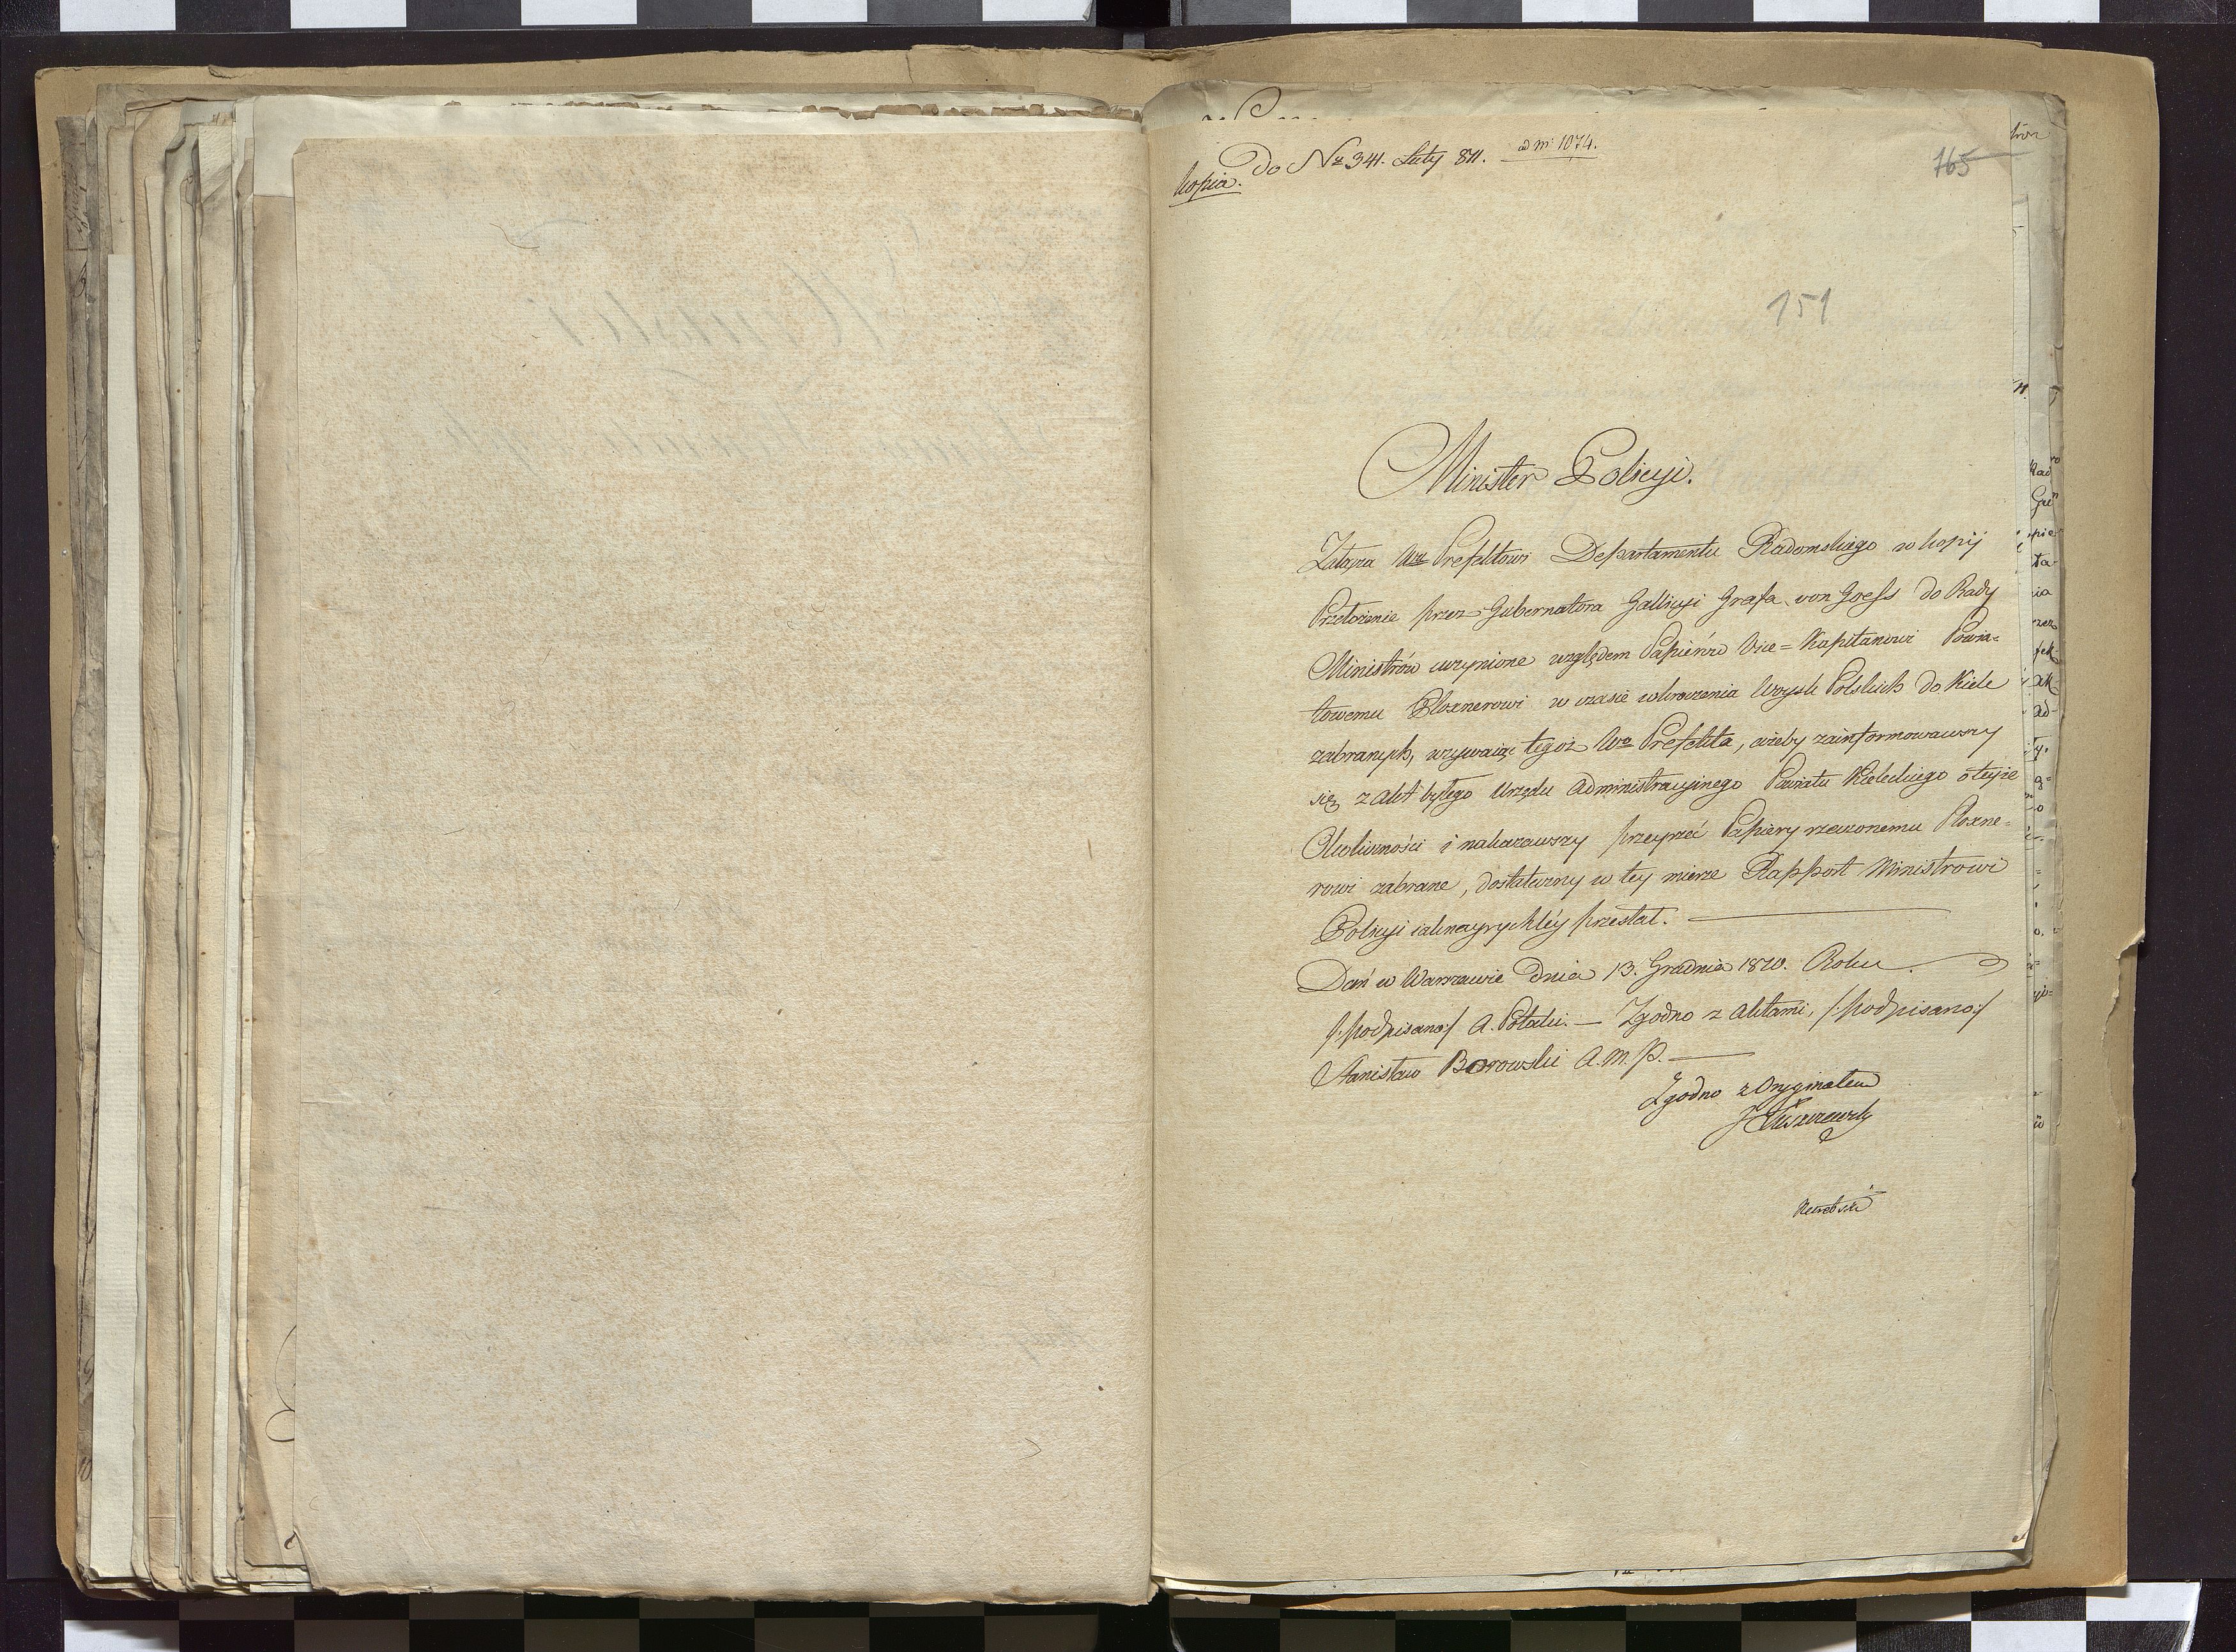 do Nr 341. Luty 811. ad Nr 1074.
kopia.
165
151
Minister Policyi.
Załącza Wmu Prefektowi Departamentu Radomskiego w kopij
Przełożenie przez Gubernatora Gallicyi Grafa von Goess do Rady
Ministrów uczynione względem Papierów Vice=Kapitanowi Powia=
towemu Ploxnerowi w czasie wkroczenia Woysk Polskich do Kielc
zabranych, wzywaiąc tegoż Wo Prefekta, ażeby zainformowawszy
się z akt byłego Urzędu Administracyinego Powiatu Kieleckiego o teyże
Okoliczności i nakazawszy przeyrzeć Papiery rzeczonemu Ploxne=
rowi zabrane, dostateczny w tey mierze Rapport Ministrowi
Policyi iaknayrychléy przesłał.
Dań w Warszawie dnia 13. Grudnia 1810. Roku.
/:podpisano:/ A. Potocki. — Zgodno z Aktami, /:podpisano:/
Stanisław Borowski A. M. P.
Zgodno z Oryginałem